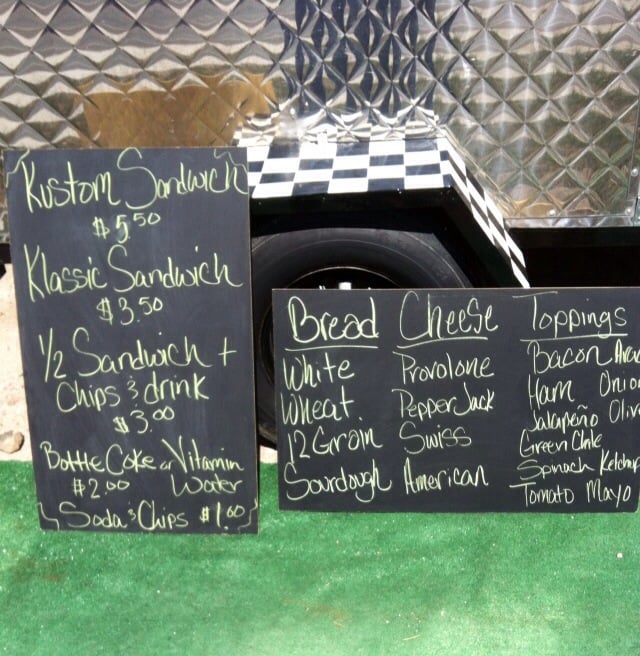 Kustom Sandwich
$5.50
Klassic Sandwich
$3.50
1/2 Sandwich +
Chips & drink
$3.00
Bottle Coke or Vitamin
$2.00 Water
Soda & Chips $1.00
Bread
White
Wheat
12 Grain
Sourdough
Cheese
Provolone
Pepper Jack
Swiss
American
Toppings
Bacon
Ham Onio
Jalapeño Oliv
Green Chile
Spinach Ketchup
Tomato Mayo